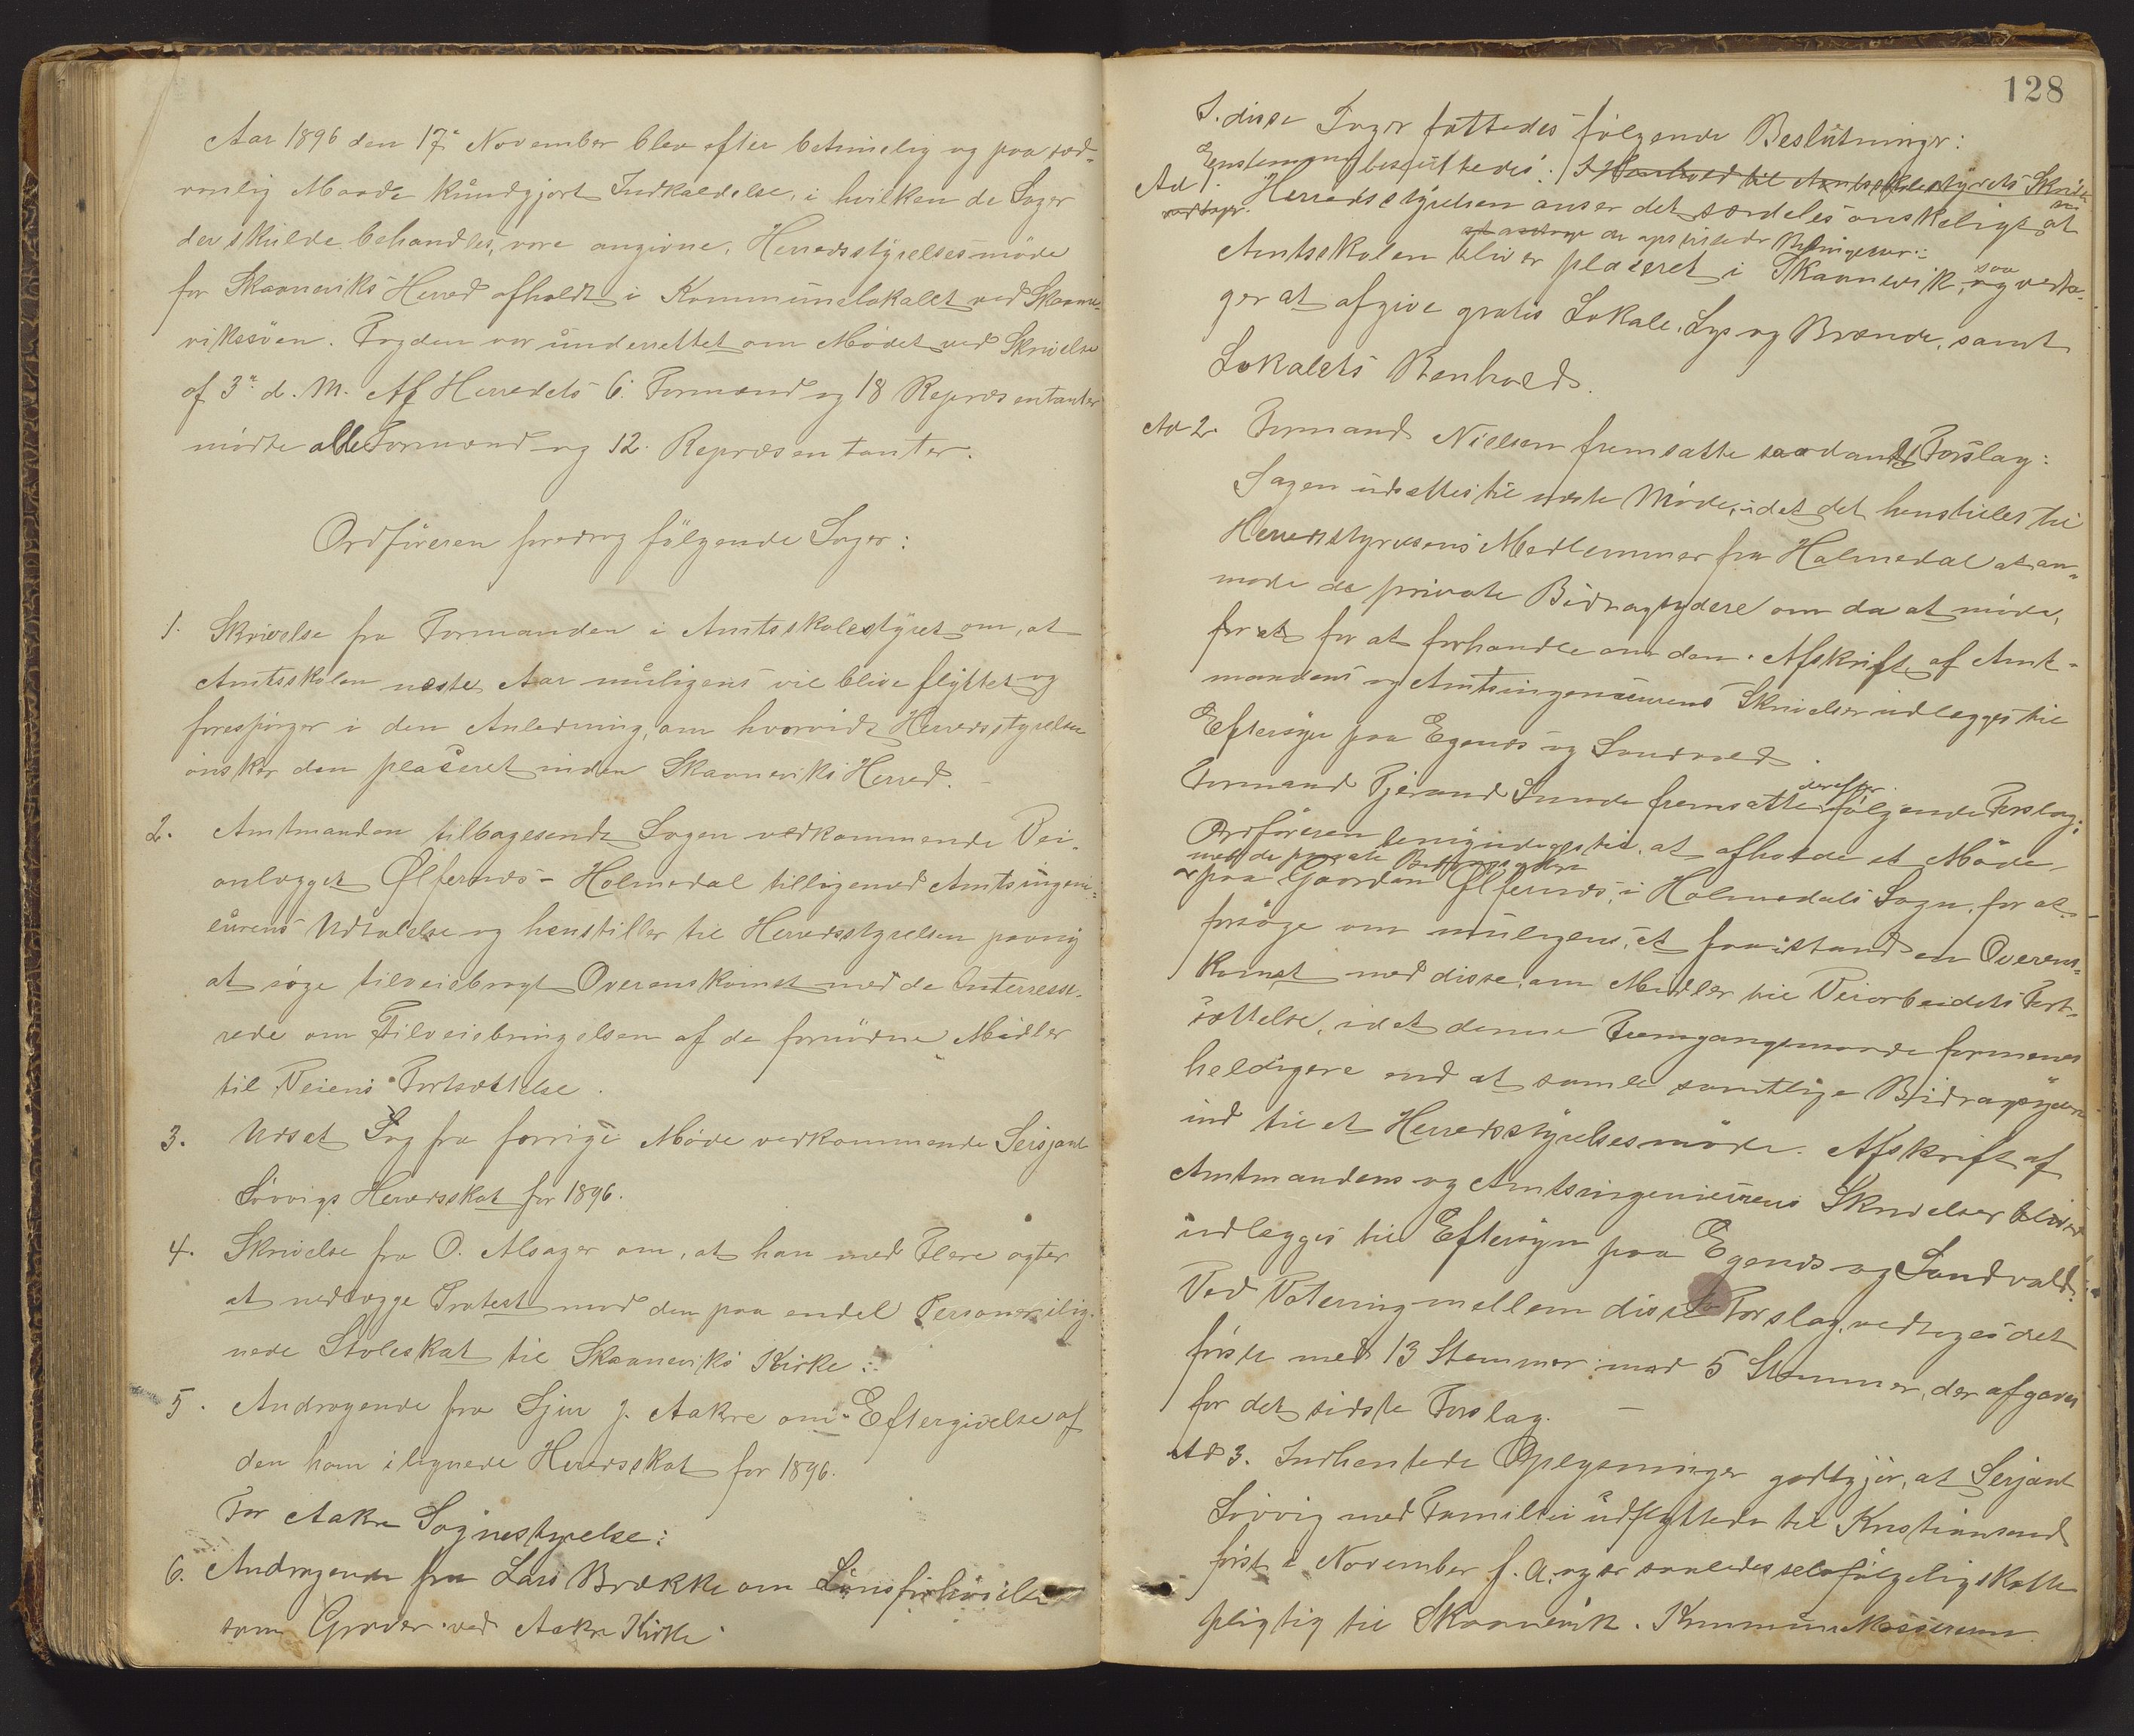 Aar 1896 den 17de November blev efter betimelig og paa sæd-
vanlig Maade kundgjort Indkaldelse, i hvilken de Sager
der skulde behandles, vare angivne, Herredsstyrelsesmöde
for Skaaneviks Herred afholdt i Kommunelokalet ved Skaane-
viksöen. Fogden var underrettet om Mödet ved Skrivelse
af 3die d. M. Af Herredets 6 Formænd og 18 Repræsentanter
mödte alle Formænd og 12 Repræsentanter.
Ordföreren foredrog fölgende Sager:
1. Skrivelse fra Formanden i Amtsskolestyret om, at
Amtsskolen næste Aar muligens vil blive flyttet og
forespörger i den Anledning, om hvorvidt Herredsstyrelsen
önsker den placeret inden Skaaneviks Herred. –
2. Amtmanden tilbagesendt Sagen vedkommende Vei-
anlægget Ølfernæs – Holmedal tilligemed Amtsingeni-
eurens Udtalelse og henstiller til Herredsstyrelsen paany
at söge tilveiebragt Overenskomst med de Interresse-
rede om Tilveiebringelsen af de fornödne Midler
til Veiens Fortsættelse.
3. Udsat Sag fra forrige Möde vedkommende Sersjant
Lövvigs Herredsskat for 1896.
4. Skrivelse fra O. Alsager om, at han med Flere agter
at nedlægge Protest mod den paa endel Personer ilig-
nede Stoleskat til Skaaneviks Kirke:
5. Andragende fra Sjur J. Aakre om Eftergivelse af
den ham ilignede Herredsskat for 1896.
For Aakre Sognestyrelse:
6. Andragende fra Lars Brække om Lönsforhöielse
som Graver ved Aakre Kirke
128
I disse Sager fattedes fölgende Beslutninger:
Enstemmig besluttedes: I Henhold til Amtsskolestyrets Skrivelse
Ad 1. Herredsstyrelsen anser det særdeles önskeligt, at
vedtager de opstillede Betingelser:
Amtsskolen bliver placeret i Skaanevik, og vedta-
saa
ger at afgive gratis Lokale, Lys og Brænde, samt
Lokalets Renhold.
Ad 2. Formand Nielsen fremsatte saadant Forslag:
Sagen udsættes til næste Möde, idet det henstilles til
Herredsstyrelsens Medlemmer fra Holmedal at an-
mode de private Bidragsydere om da at möde,
for at for at forhandle om den. Afskrift af Amt-
mandens og Amtsingenieurens Skrivelser udlægges til
Eftersyn paa Egenæs og Sandvold.
Formand Tjerand Sunde fremsatte fölgende Forslag:
derefter
Ordföreren bemyndiges til, at afholde et Möde
med de private Bidragsydere
paa Gaarden Ølfernæs, i Holmedals Sogn, for at
forsöge om muligens, at faa istand en Overens-
komst med disse, om Midler til Veiarbeidets Fort-
sættelse, idet denne Fremgangsmaade formenes
heldigere end at samle samtlige Bidragsydere
ind til et Herredsstyrelsesmöde. Afskrift af
Amtmandens og Amtsingenieurens Skrivelser
udlægges til Eftersyn paa Egenæs og Sandvold.
Ved Votering mellem disse to Forslag, vedtoges det
förste med 13 Stemmer mod 5 Stemmer, der afgaves
for det sidste Forslag. –
Ad 3. Indhentede Oplysninger godtgjör, at Sersjant
Lövvig med Familie udflyttede til Kristiansand
först i November f. A. og er saaledes selvfölgelig skatte
pligtig til Skaanevik. Kommunekassereren